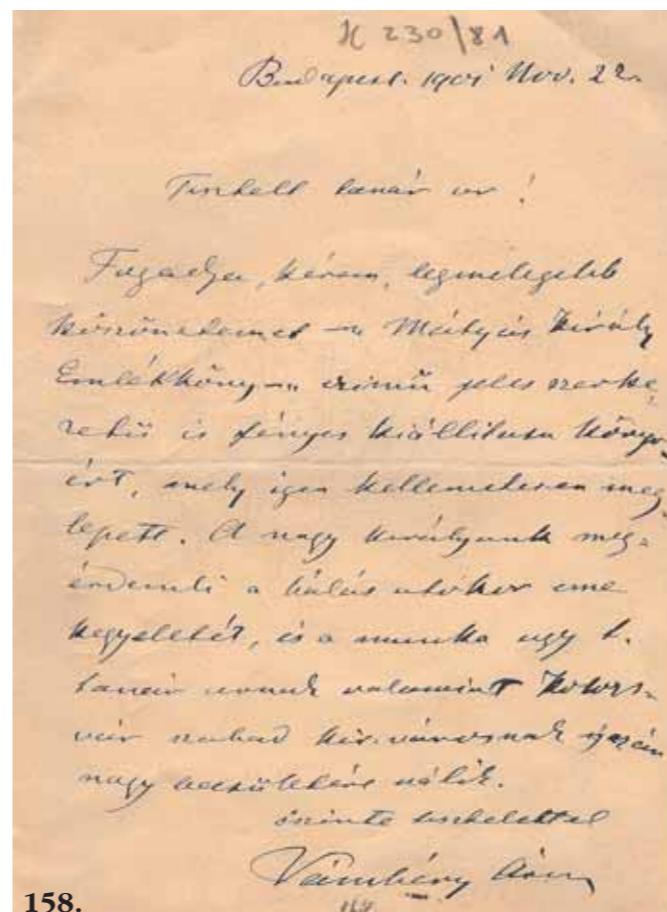 K 230/81
Budapest. 1901 Nov. 22.
Tisztelt tanár ur!
Fogadja, kérem, legmelegebb
köszönetemet a Mátyás Király
Emlékköny czimű jeles szerke-
zetű és fényes kiállitásu könyv-
ért, mely igen kellemetesen meg-
lepett. A nagy királyunk meg-
érdemli a hálás utókor eme
kegyeletét, és a munka ugy t.
tanár urnak valamint Kolozs-
vár szabad kir. városnak igazán
nagy becsületére válik.
őszinte tisztelettel
Vámbéry Ármin
158.